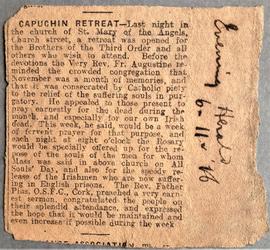 CAPUCHIN RETREAT—Last night in
the church of St. Mary of the Angels,
Church street, a retreat was opened for
the Brothers of the Third Order and all
others who wish to attend. Before the
devotions the Very Rev. Fr. Augustine re-
minded the crowded congregation that
November was a month of memories, and
that it was consecrated by Catholic piety
to the relief of the suffering souls in pur-
gatory. He appealed to those present to
pray earnestly for the dead during the
month, and especially for our own Irish
dead. This week, he said, would be a week
of fervent prayer for that purpose, and
each night at eight o'clock the Rosary
would be specially offered up for the re-
pose of the souls of the men for whom
Mass was said in above church on All
Souls' Day, and also for the speedy re-
lease of the Irishmen who are now suffer-
ing in English prisons. The Rev. Father
Pius, O.S.F.C., Cork, preached a very earn-
est sermon, congratulated the people on
their splendid attendance, and expressed
the hope that it would be maintained and
even increase if possible during the week
ASSOCIATION
Evening Herald
6-11-16